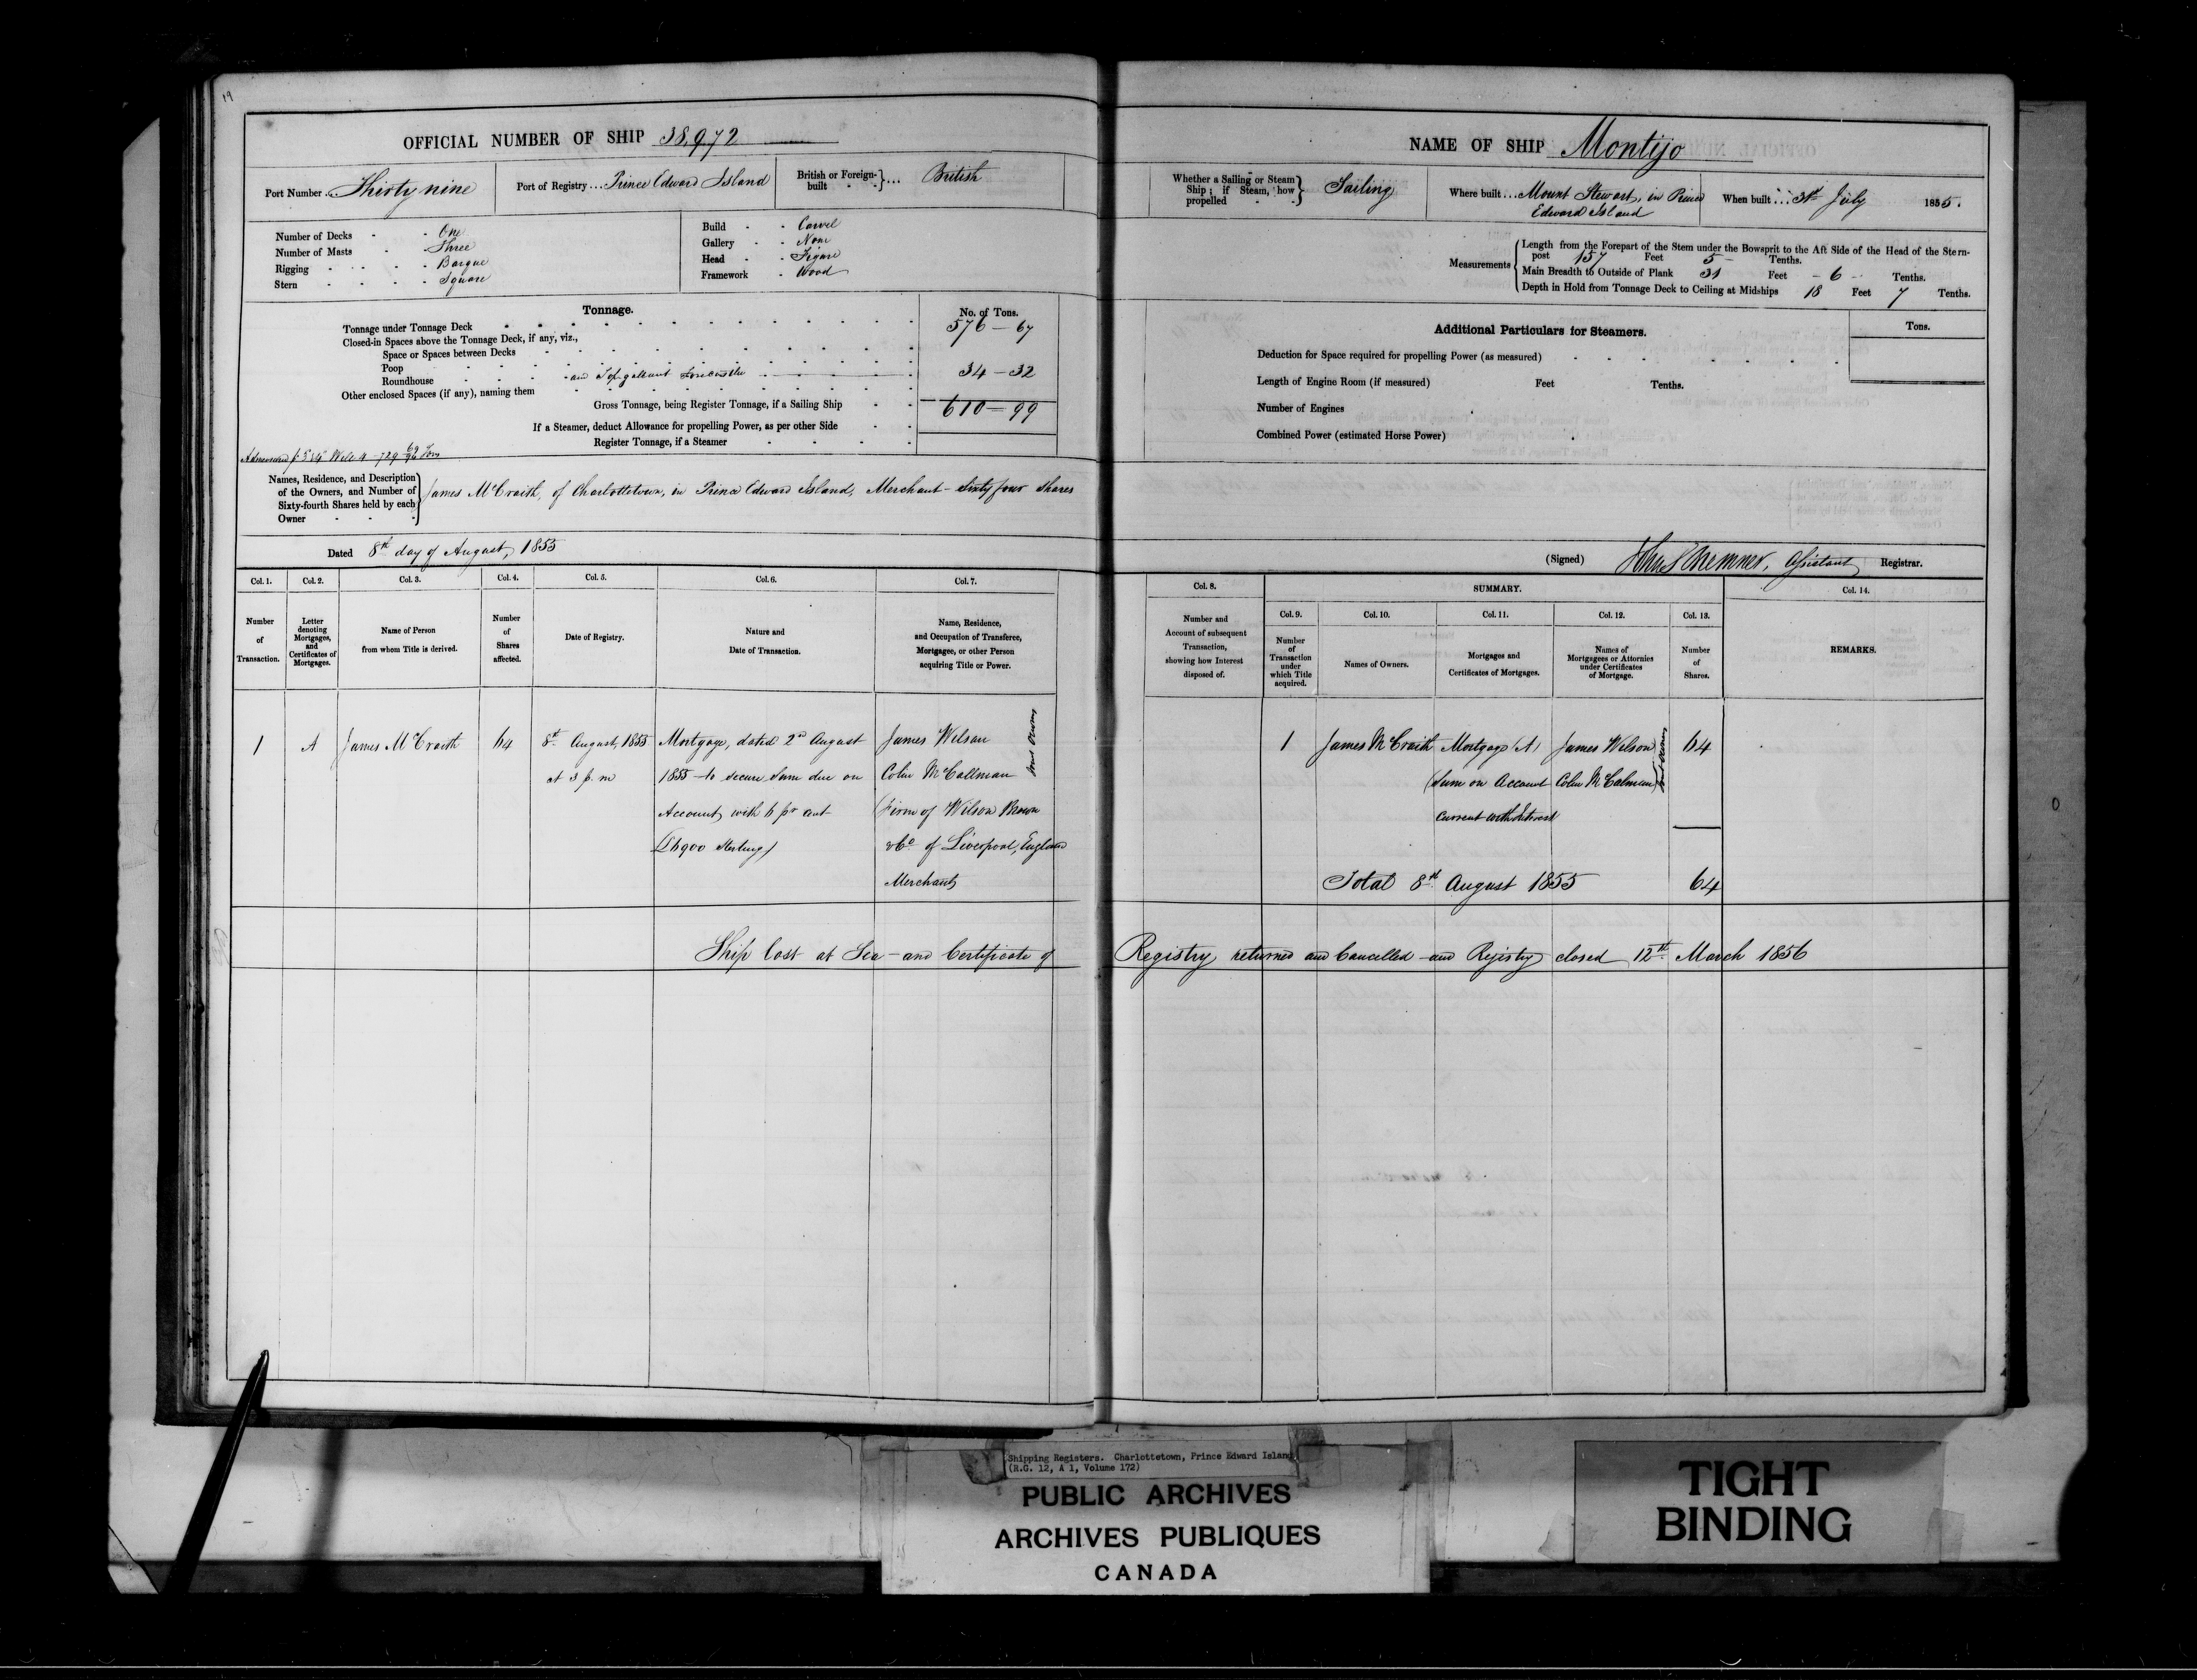 19
OFFICIAL NUMBER OF SHIP 38,972
Port Number... Thirty nine
Port of Registry... Prince Edward Island
British or Foreign-built } ... British
Number of Decks - - One
Number of Masts - - Three
Rigging - - - - Barque
Stern - - - - Square
Build - - Carvel
Gallery - - None
Head - - Figure
Framework - - Wood
Tonnage.
No. of Tons.
Tonnage under Tonnage Deck 576 - 67
Closed-in Spaces above the Tonnage Deck, if any, viz.,
Space or Spaces between Decks
Poop
Roundhouse and Topgallant Forecastle 34 - 32
Other enclosed Spaces (if any), naming them
Gross Tonnage, being Register Tonnage, if a Sailing Ship 610 - 99
If a Steamer, deduct Allowance for propelling Power, as per other Side
Register Tonnage, if a Steamer
Names, Residence, and Description
of the Owners, and Number of
Sixty-fourth Shares held by each
Owner - - -
James McCraith, of Charlottetown, in Prince Edward Island, Merchant - Sixty four Shares
Dated 8th day of August, 1855
Col. 1. Col. 2. Col. 3. Col. 4. Col. 5. Col. 6. Col. 7.
Number of Transaction.
Letter denoting Mortgages, and Certificates of Mortgages.
Name of Person from whom Title is derived.
Number of Shares affected.
Date of Registry.
Nature and Date of Transaction.
Name, Residence, and Occupation of Transferee, Mortgagee, or other Person acquiring Title or Power.
1 A James McCraith 64 8th August, 1855 Mortgage, dated 2nd August James Wilson
at 3 p.m 1855 to secure Sum due on Colin McCallman
Account, with 6 pr cent (Firm of Wilson Brown
(£6900 Sterling) & Co of Liverpool, England
Merchants
Joint Owners
Ship Lost at Sea - and Certificate of
NAME OF SHIP Montijo
Whether a Sailing or Steam Ship; if Steam, how propelled } Sailing
Where built... Mount Stewart, in Prince
Edward Island
When built... 31st July 1855.
Measurements
Length from the Forepart of the Stem under the Bowsprit to the Aft Side of the Head of the Stern-
post 157 Feet 5 Tenths.
Main Breadth to Outside of Plank 31 Feet 6 Tenths.
Depth in Hold from Tonnage Deck to Ceiling at Midships 18 Feet 7 Tenths.
Additional Particulars for Steamers.
Tons.
Deduction for Space required for propelling Power (as measured)
Length of Engine Room (if measured) Feet Tenths.
Number of Engines
Combined Power (estimated Horse Power)
(Signed) Assistant Registrar.
Col. 8. SUMMARY. Col. 14.
Col. 9. Col. 10. Col. 11. Col. 12. Col. 13.
Number and Account of subsequent Transaction, showing how Interest disposed of.
Number of Transaction under which Title acquired.
Names of Owners.
Mortgages and Certificates of Mortgages.
Names of Mortgagees or Attornies under Certificates of Mortgage.
Number of Shares.
REMARKS.
1 James McCraith Mortgage (A) James Wilson 64
(Sum on Account Colin McCalman
Current with Interest
Joint Owners
Total 8th August 1855 64
Registry returned and Cancelled and Registry closed 12th March 1856
Shipping Registers. Charlottetown, Prince Edward Island
(R.G. 12, A 1, Volume 172)
PUBLIC ARCHIVES
ARCHIVES PUBLIQUES
CANADA
TIGHT
BINDING